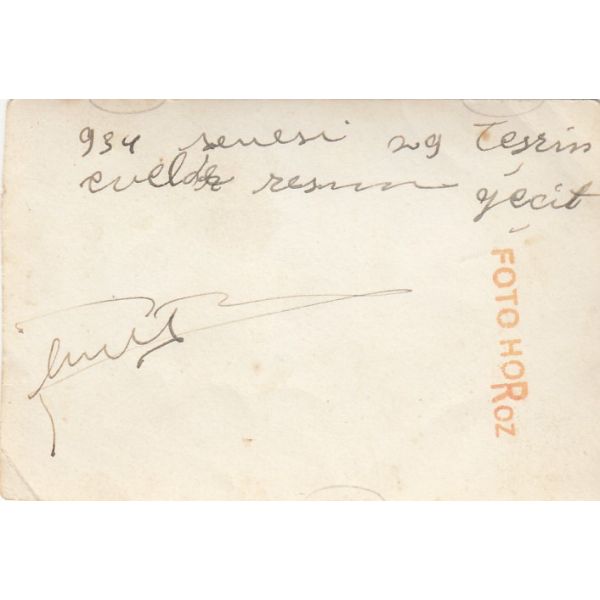 934 senesi 29 Teşrin
evelde resmin geçit
FOTO HOROZ